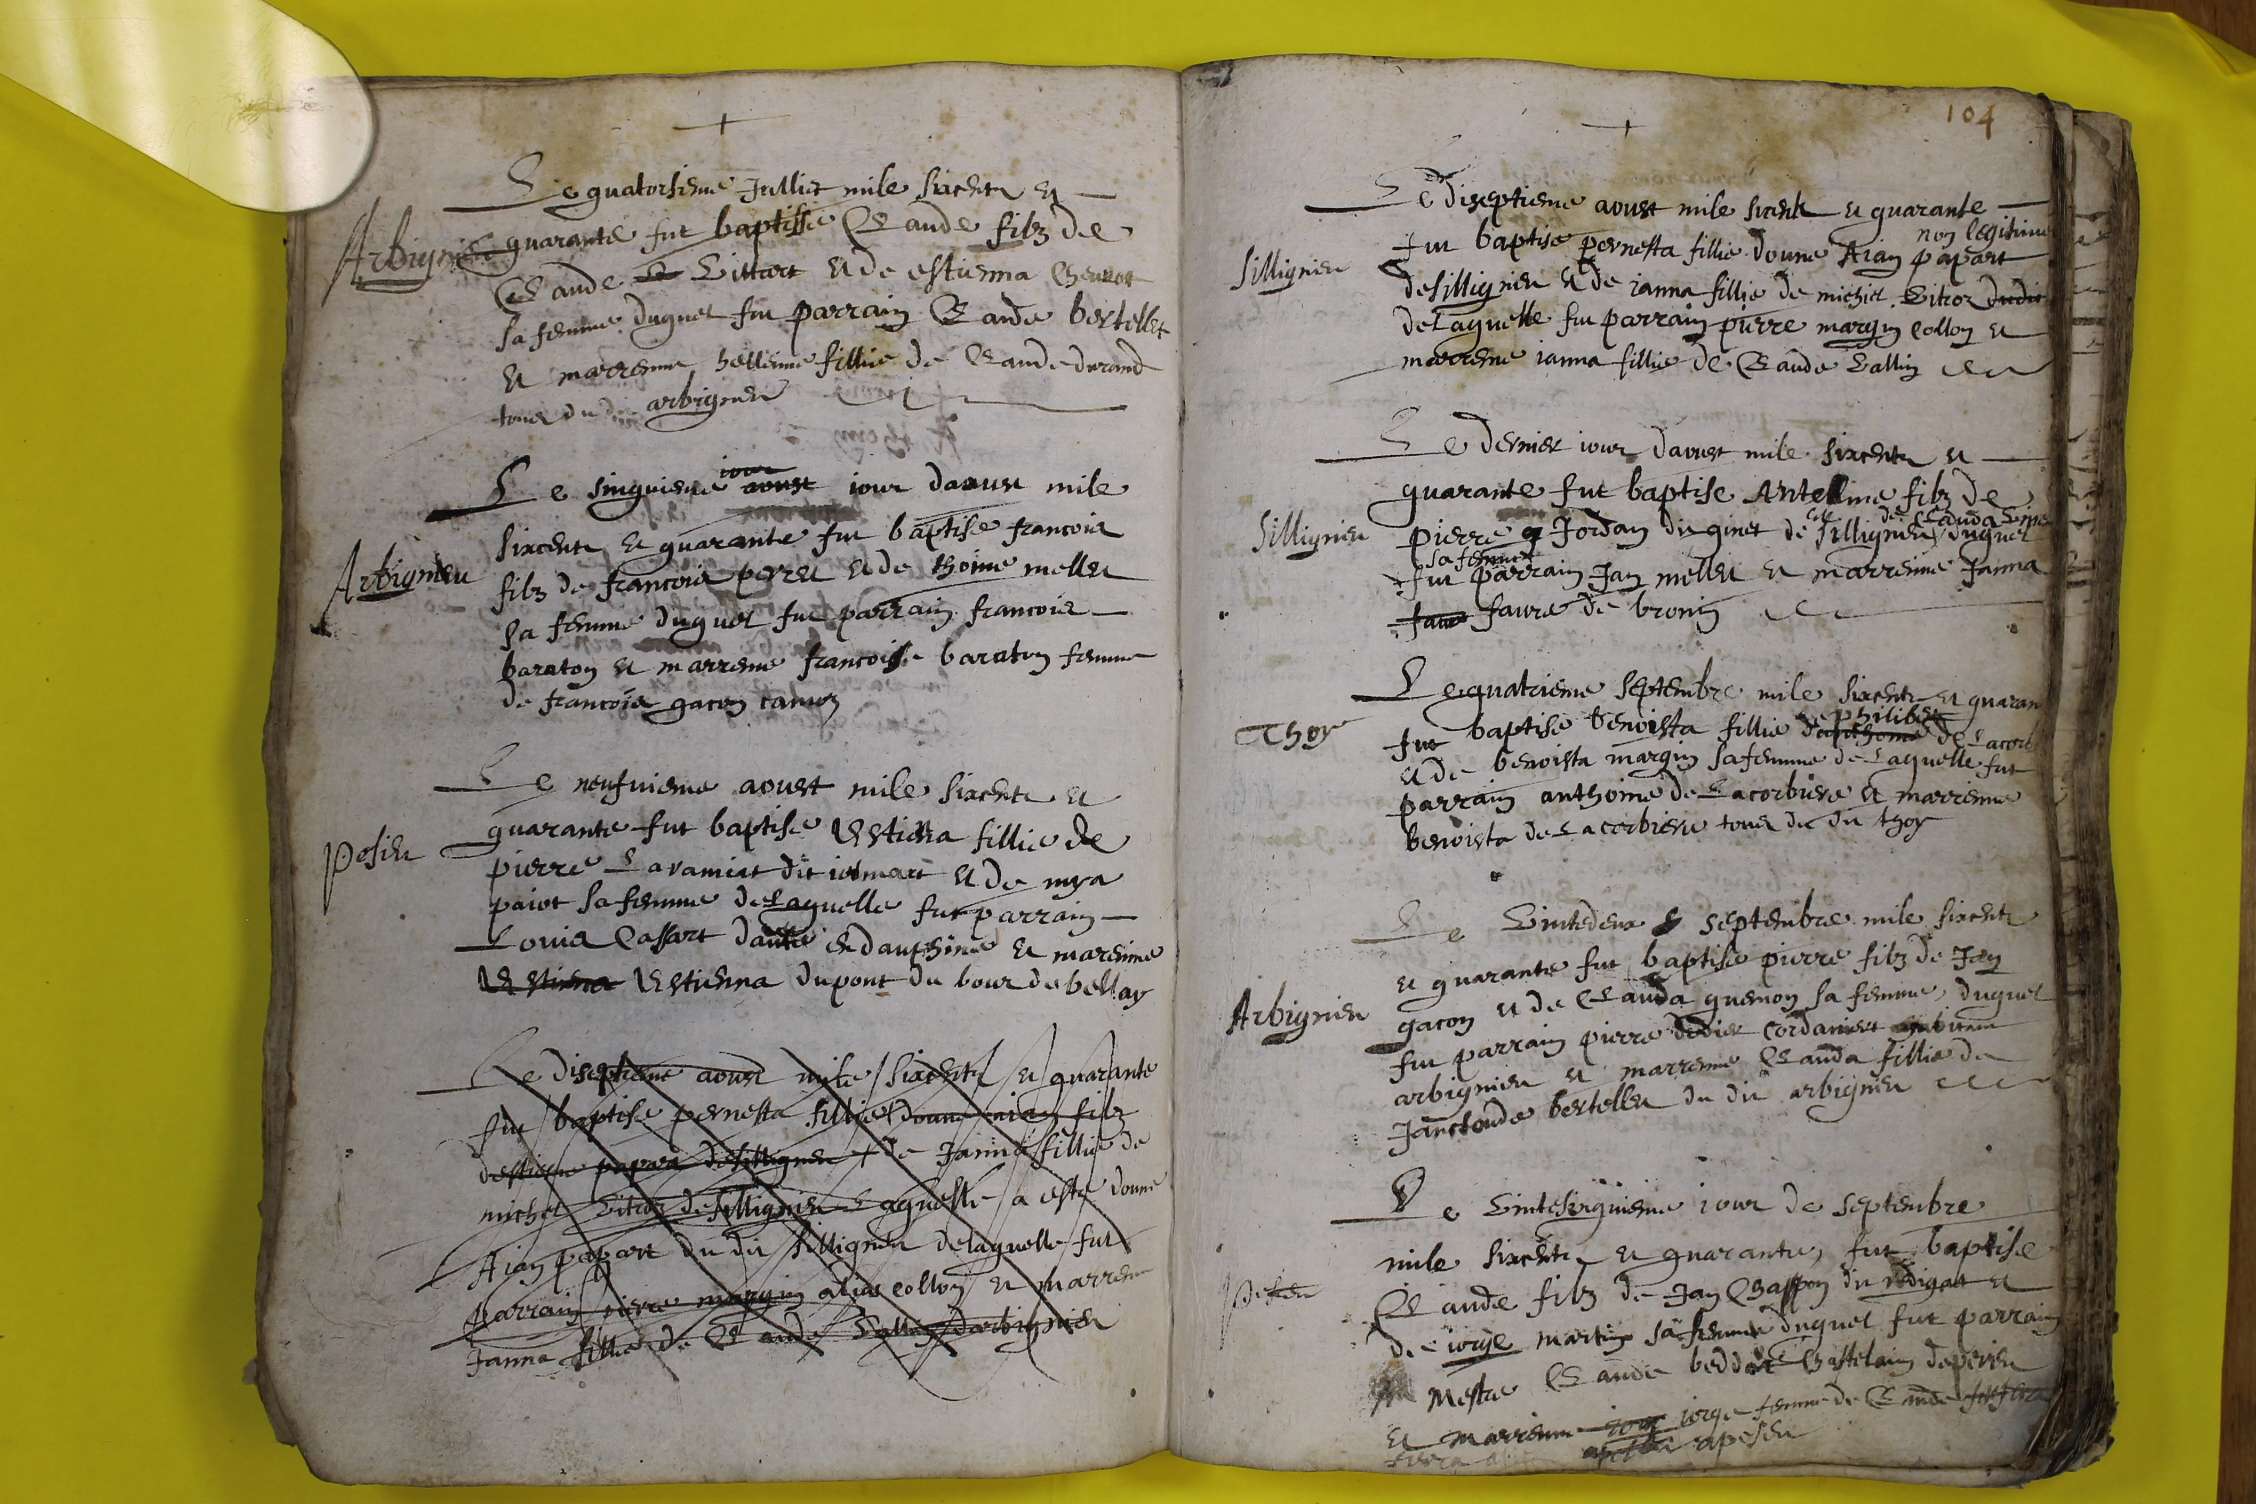 Le quatorsieme Julliet mile sixcents et
Arbignieu
quarante fut baptisse Claude filz de
Claude Littart et de estienna Chenot
sa femme duquel fut parrain Claude bertellet
et marrenne hellenne fillie de Claude durand
tous du dit arbignieu
Le singuieme aoust jour jour daaust mile
Arbignieu
sixcents et quarante fut baptise francois
filz de francois perret et de thoine mellet
sa femme duquel fut parrain francois
baraton et marrenne francoise baraton femme
de francois gacon camoz
Le neufuieme aoust mile sixcents et
Pesieu
quarante fut baptise Estiena fillie de
pierre Laramiat dit jolmart et de mya
paiot sa femme de Laquelle fut parrain
Louis Cassart dante en dauphine et marenne
Estiena Estienna dupont du bour de bellay
Le diseptieme aoust mile sixcents et quarante
fut baptise pernetta fillie donne a ian filz
destiene papra de sillignieu et de Janna fillie de
michel Litroz de Sillignieu Laquelle a este donne
A ian papart du dit sillignieu delaquelle fut
parrain pierre margin alias collon et marrenne
Janna fillie de Claude Lallin darbignieu
104
Le diseptieme aoust mile sixcents et quarante
non legitime
fut baptise pernetta fillie donne A ian papart
Sillignieu
desillignieu et de ianna fillie de michel Litroz dudit
deLaquelle fut parrain pierre margin collon et
marrenne ianna fillie de Claude Lallin
Le dernier iour daoust mile sixcents et
quarante fut baptise Antelme filz de
de Clauda
Sillignieu
pierre Jordan dit ginet de sillignieu duquel
sa femme
fut parrain Jan mellet et marrenne Janna
faure de bronin
Le quatrieme septembre mile sixcents et quaran
de philibert
Thoy
fut baptise benoista fillie danthoine de Lacorb
et de benoista margin sa femme de Laquelle fut
parrain anthoine de Lacorbiere et marrenne
benoista de Lacorbiere tous du dit thoy
Le Vintedeux septembre mile sixcents
et quarante fut baptise pierre filz de Jan
Arbignieu
gacon et de Clauda guemon sa femme, duquel
fut parrain pierre didier Cordanier habitant
arbignieu et marrenne Clauda fillie de
Janclaude bertellet du dit arbignieu
Le Vintesinquieme iour de septembre
mile sixcents et quarante, fut baptise
Pesieu
Claude filz de Jan Chappon dit rodigat et
de iorge martin sa femme duquel fut parrain
Mestre Claude beddat Chastelain depeyrieu
et marrenne iorge femme de Claude
apesieu